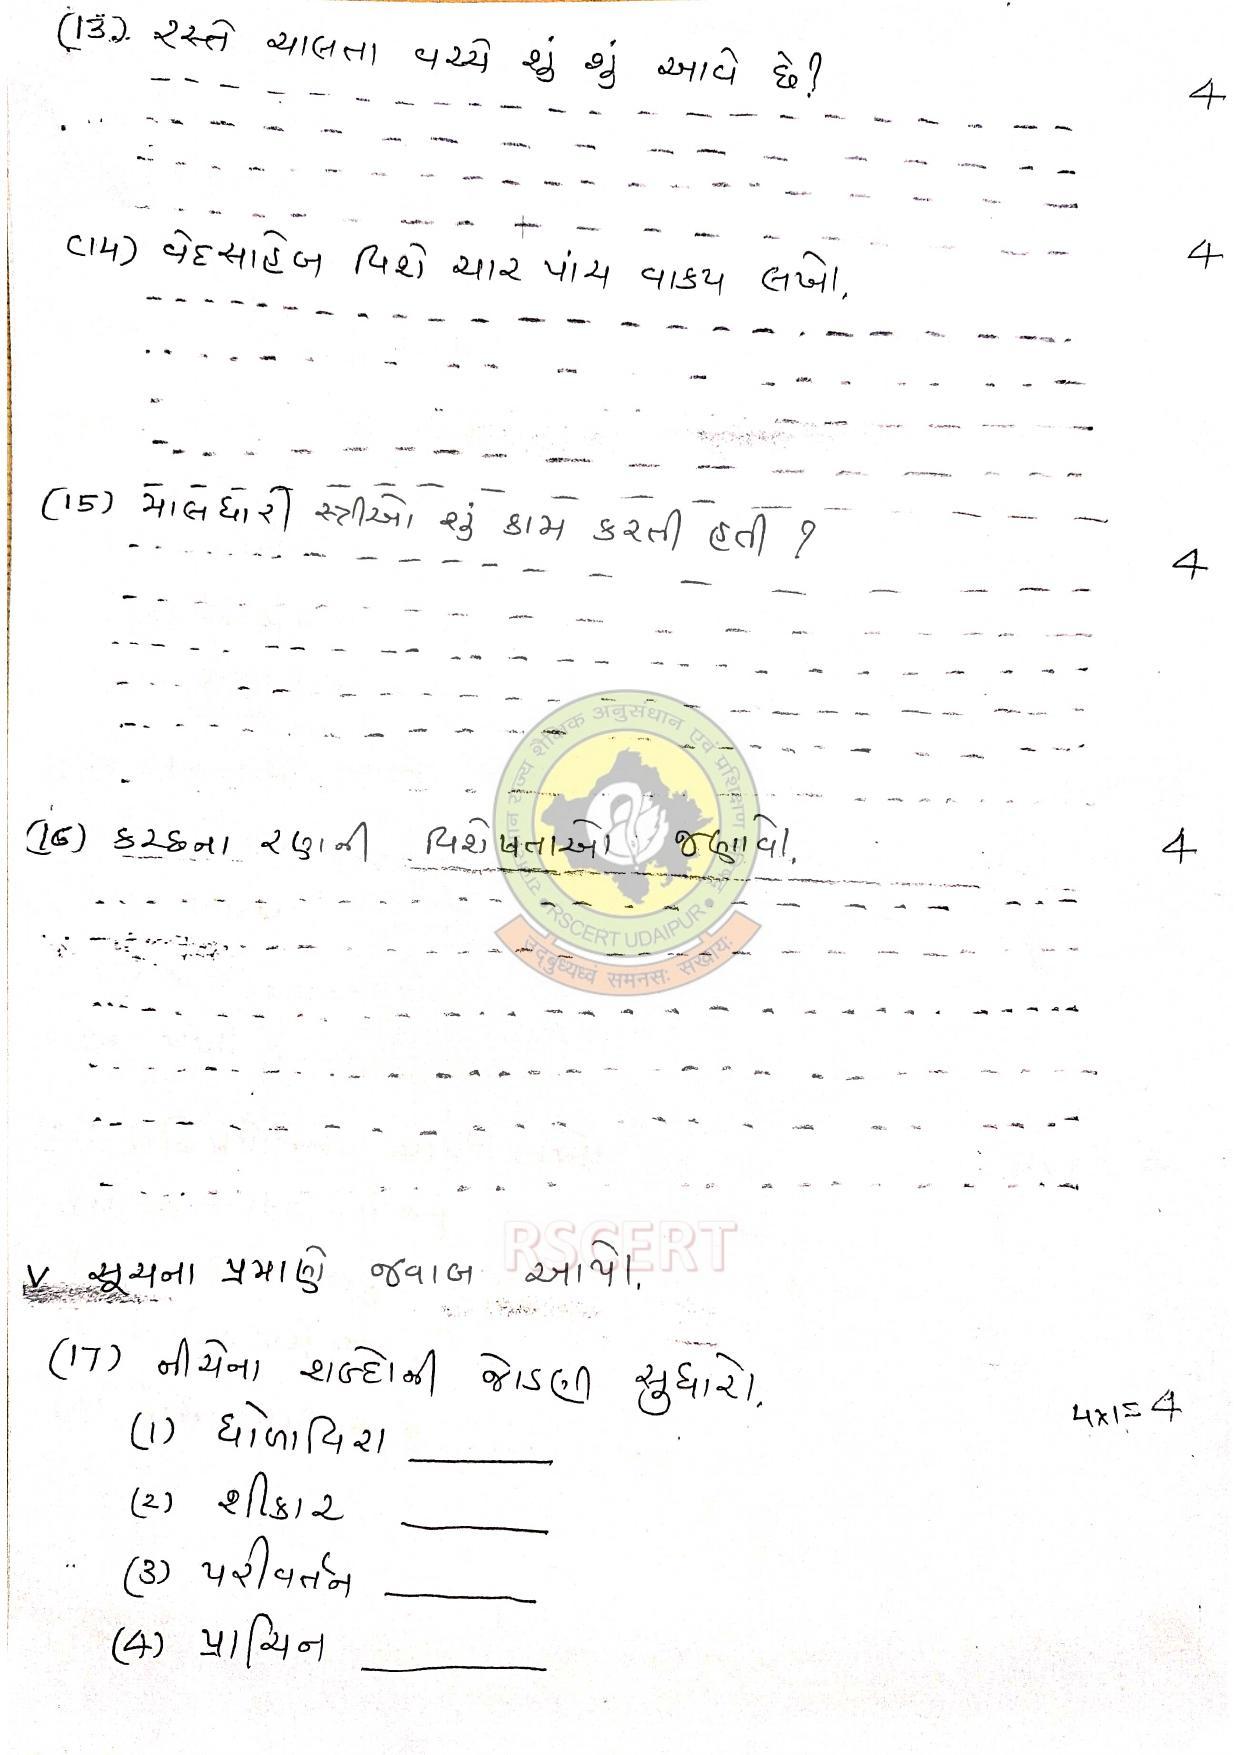 (13). રસ્તે ચાલતા વચ્ચે શું શું આવે છે?
4
(14) વેદસાહેબ વિશે ચાર પાંચ વાકય લખો.
4
(15) માલધારી સ્ત્રીઓ શું કામ કરતી હતી ?
4
(16) કચ્છના રણની વિશેષતાઓ જણાવો.
4
RSCERT UDAIPUR
उद्बुध्यध्वं समनसः सखायः
RSCERT
V સૂચના પ્રમાણે જવાબ આપો.
(17) નીચેના શબ્દોની જોડણી સુધારો.
4x1=4
(1) ધોળાવિરા ______
(2) શીકાર ______
(3) પરીવર્તન ______
(4) પ્રાચિન ______